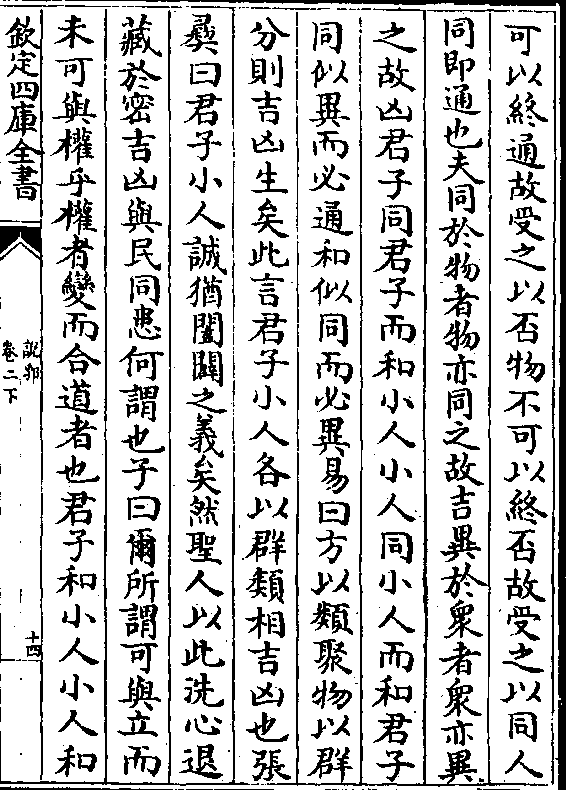 可以終通故受之以否物不可以終否故受之以同人
同即通也夫同於物者物亦同之故吉異於衆者衆亦異
之故凶君子同君子而和小人小人同小人而和君子
同似異而必通和似同而必異易曰方以類聚物以群
分則吉凶生矣此言君子小人各以群類相吉凶也張
彝曰君子小人誠猶闔闢之義矣然聖人以此洗心退
藏於密吉凶與民同患何謂也子曰爾所謂可與立而
未可與權乎權者變而合道者也君子和小人小人和
欽定四庫全書
說郛
卷二下
十四